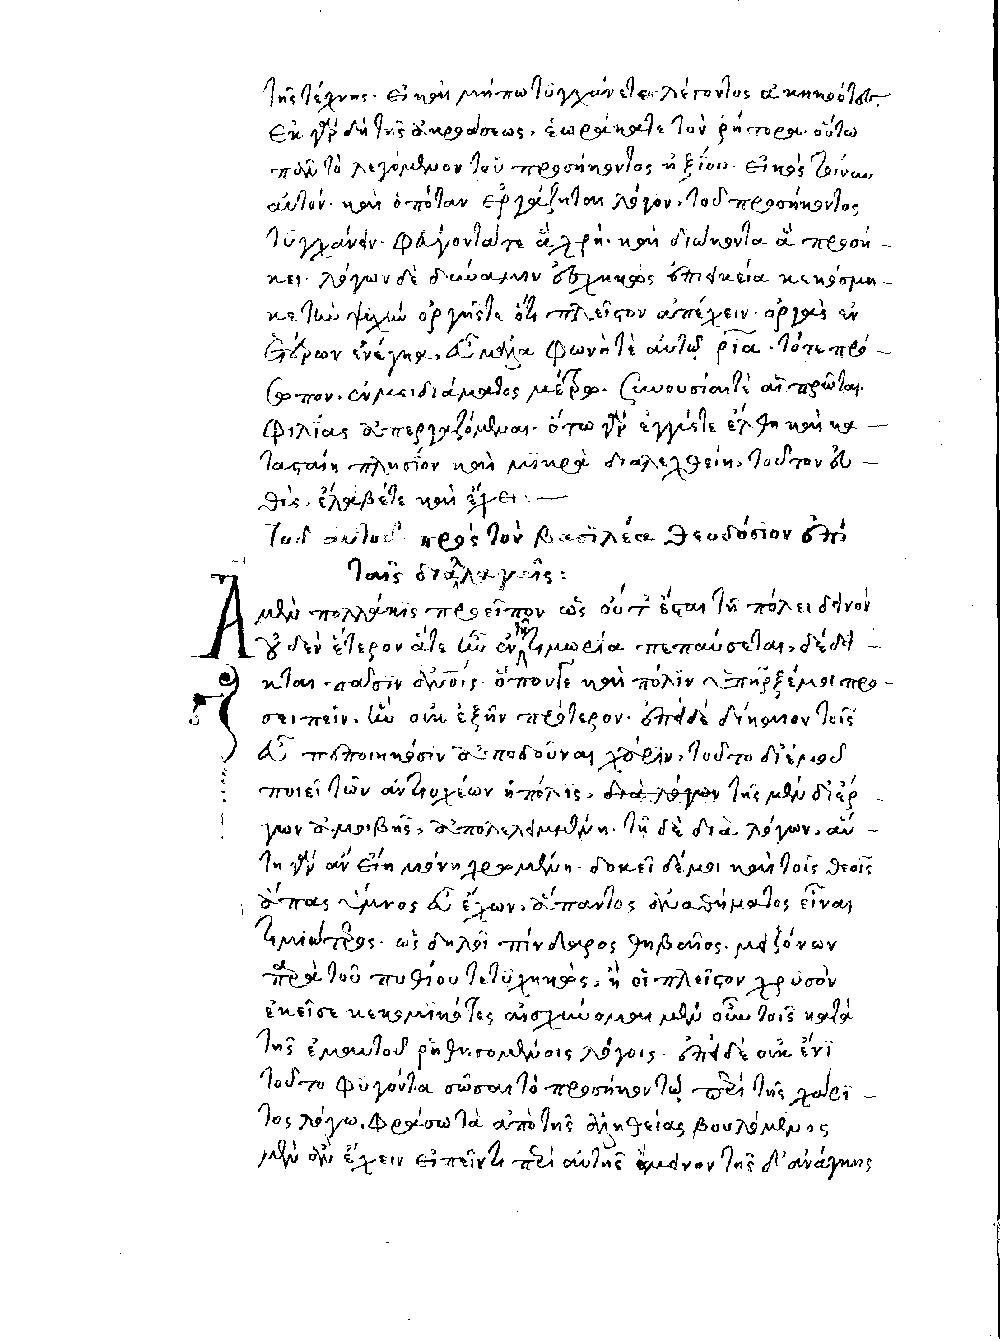 τῆς τέχνης. εἰ καὶ μήπω τυγχάνετε λέγοντος ἀκηκοότες
ἐκ γὰρ δὴ τῆς ἀκροάσεως, ἑωράκατε τὸν ῥήτορα. οὕτω
τὸ λεγόμενον τοῦ προσήκοντος ἠξίου. εἰκὸς τοίνυν
αὐτὸν καὶ ὁπόταν ἐργάζηται λόγον, τοῦ προσήκοντος
τυγχάνειν. φθέγγονταί τε ἃ χρὴ. καὶ διώκοντα ἃ προσή-
κει. λόγων δὲ δύναμιν ἐπιεικείᾳ κεκόσμη-
κε τὴν ψυχὴν ὀργῆς τε ὅτι πλεῖστον ἀπέχειν. ὀργὰς ἐν
ἑτέρων ἐνέγκαι, καὶ φωνή τε αὐτῷ τό τε πρό-
σωπον. ἐν μειδιάματος μέτρῳ. συνουσίαι τὲ αἱ πρῶται
φιλίας ἀπεργαζόμεναι. ὅτῳ γὰρ ἐγγύς τε ἐλθεῖν καὶ κα-
ταστῆναι πλησίον καὶ μικρὰ διαλεχθείη, τοῦτον εὐ-
θὺς, ἔλαβέ τε καὶ ἔχει:—
τοῦ αὐτοῦ πρὸς τὸν βασιλέα θεοδόσιον ἐπὶ
ταῖς διαλλαγαῖς:
Ἃ μὲν πολλάκις προεῖπον ὡς οὔτ' ἔσται τῇ πόλει δεινὸν
οὐδὲν ἕτερον ἅτε ἦν ἐν τῇ τιμωρία πεπαύσεται, δέδει-
κται πᾶσιν ὅπου γε καὶ πόλιν ὑπῆρξέ μοι προ-
σειπεῖν. ἣν οὐκ ἐξῆν πρότερον. ἐπεὶ δὲ δίκαιον τοῖς
εὖ πεποιηκόσιν ἀποδοῦναι χάριν, τοῦτο δι' ἐμοῦ
ποιεῖ τῶν ἀντιοχέων ἡ πόλις. διὰ λόγων τῆς μὲν δι' ἔρ-
γων ἀμοιβῆς, ἀπολελειμμένη. τῇ δὲ διὰ λόγων. αὕ-
τη γὰρ ἂν εἴη μόνη χρωμένη. δοκεῖ δέ μοι καὶ τοῖς θεοῖς
ἅπας ὕμνος εὖ ἔχων, ἅπαντος ἀναθήματος εἶναι
τιμιώτερος. ὡς δηλοῖ πίνδαρος θηβαῖος. μειζόνων
παρὰ τοῦ πυθίου τετυχηκὼς, ἢ οἱ πλεῖστον χρυσὸν
ἐκεῖσε κεκομικότες αἰσχύνομαι μὲν οὖν τοῖς κατὰ
τῆς ἐμαυτοῦ ῥηθησομένοις λόγοις. ἐπεὶ δὲ οὐκ ἔνι
τοῦτο φυγόντα σῶσαι τὸ προσῆκον τῷ περὶ τῆς χάρι-
τος λόγῳ, φράσω τὰ ἀπὸ τῆς ἀληθείας βουλόμενος
μὲν ἂν ἔχειν εἰπεῖν τι περὶ αὐτῆς ἄμεινον τῆς δ' ἀνάγκης